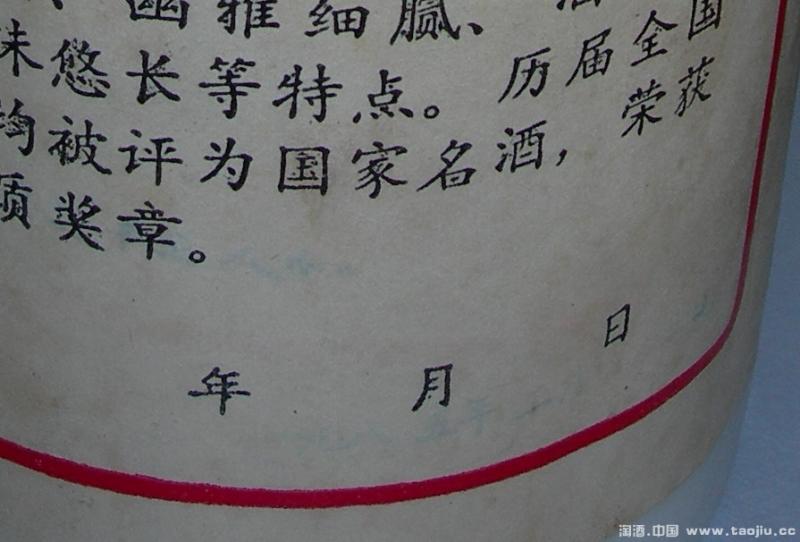 、幽雅细腻、酒
味悠长等特点。历届全国
均被评为国家名酒，荣获
质奖章。
年 月 日
淘酒.中国 www.taojiu.cc